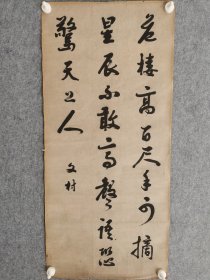 危楼高百尺手可摘
星辰不敢高声语恐
驚天上人
文村